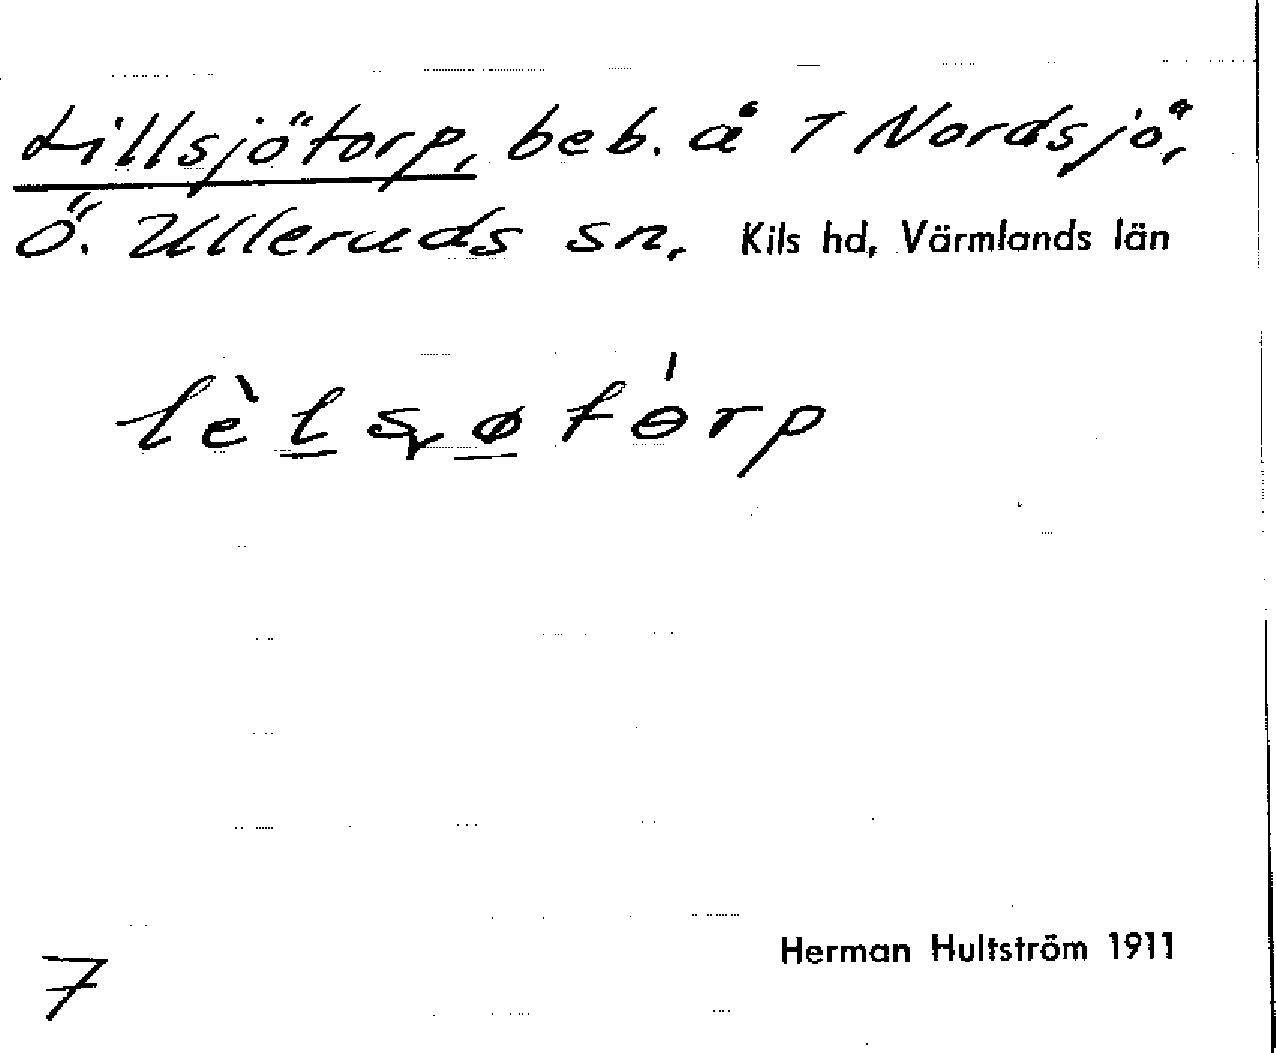 Lillsjötorp, beb. å 7 Nordsjö,
Ö. Ulleruds sn, Kils hd, Värmlands län
Herman Hultström 1911
7